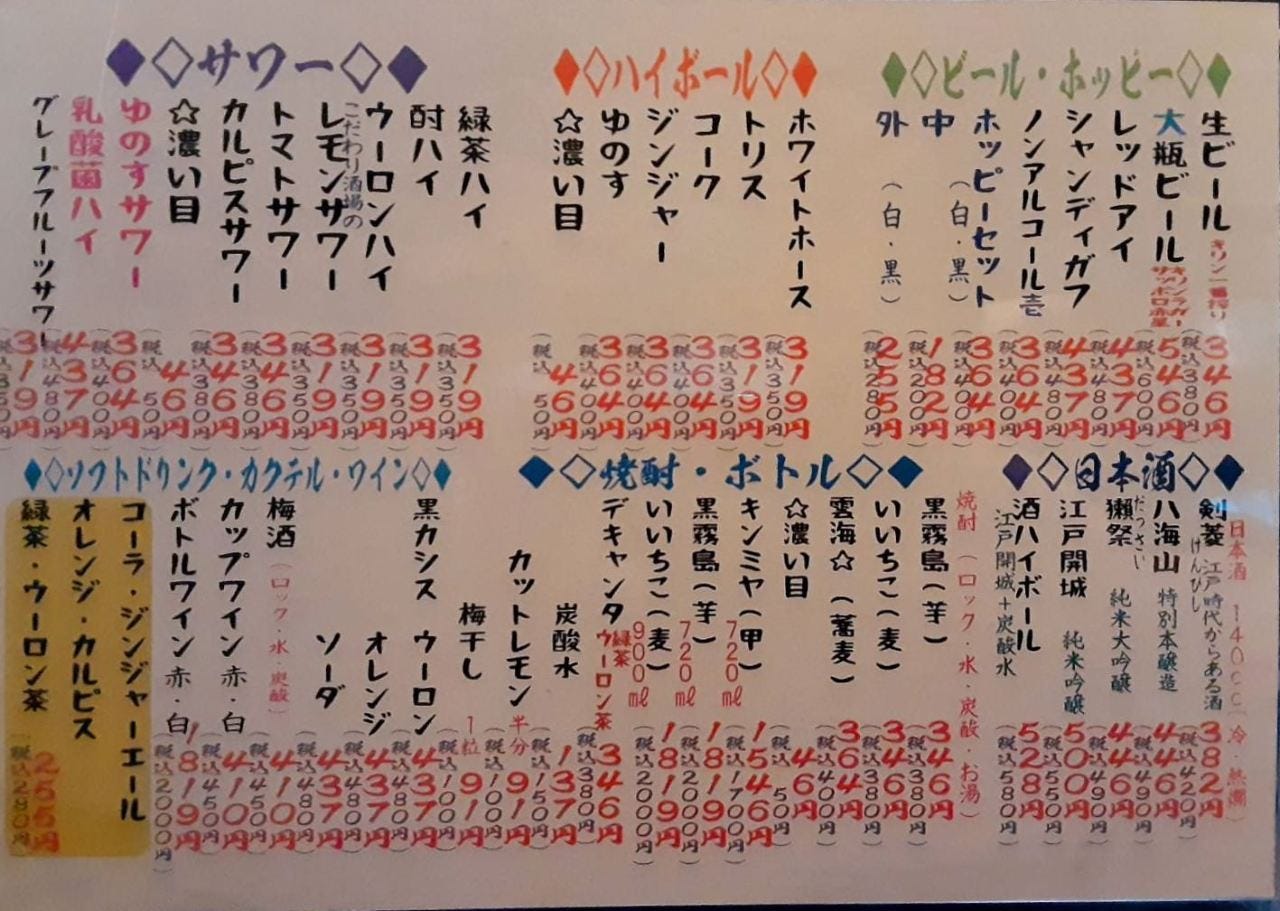 ◆◇ビール・ホッピー◇◆
生ビール キリン一番搾り 346円（税込380円）
大瓶ビール キリンラガー サッポロ赤星 546円
レッドアイ 437円（税込480円）
シャンディガフ 437円（税込480円）
ノンアルコール壱 364円（税込400円）
ホッピーセット（白・黒） 364円（税込400円）
中 182円（税込200円）
外（白・黒） 255円（税込280円）
◆◇ハイボール◇◆
ホワイトホース 319円（税込350円）
トリス 319円（税込350円）
コーク 364円（税込400円）
ジンジャー 364円（税込400円）
ゆのす 364円（税込400円）
☆濃い目 46円（税込50円）
◆◇サワー◇◆
緑茶ハイ 319円（税込350円）
酎ハイ 319円（税込350円）
ウーロンハイ 319円（税込350円）
こだわり酒場の
レモンサワー 319円（税込350円）
トマトサワー 346円（税込380円）
カルピスサワー 346円（税込380円）
☆濃い目 46円（税込50円）
ゆのすサワー 364円（税込400円）
乳酸菌ハイ 437円（税込480円）
グレープフルーツサワー 319円（税込350円）
◆◇日本酒◇◆
日本酒 140cc（冷・熱燗）
剣菱 けんびし 江戸時代からある酒 382円（税込420円）
八海山 特別本醸造 446円（税込490円）
獺祭 だっさい 純米大吟醸 446円（税込490円）
江戸開城 純米吟醸 500円（税込550円）
酒ハイボール 528円（税込580円）
江戸開城＋炭酸水
◆◇焼酎・ボトル◇◆
焼酎（ロック・水・炭酸・お湯）
黒霧島（芋） 346円（税込380円）
いいちこ（麦） 346円（税込380円）
雲海☆（蕎麦） 364円（税込400円）
☆濃い目 46円（税込50円）
キンミヤ（甲） 720㎖ 1546円（税込1700円）
黒霧島（芋） 720㎖ 1819円（税込2000円）
いいちこ（麦） 900㎖ 1819円（税込2000円）
デキャンタ 緑茶 ウーロン茶 346円（税込380円）
炭酸水 137円（税込150円）
カットレモン 半分 91円（税込100円）
梅干し 1粒 91円（税込100円）
◆◇ソフトドリンク・カクテル・ワイン◇◆
黒カシス ウーロン 437円（税込480円）
オレンジ 437円（税込480円）
ソーダ 437円（税込480円）
梅酒（ロック・水・炭酸） 410円（税込450円）
カップワイン 赤・白 410円（税込450円）
ボトルワイン 赤・白 1819円（税込2000円）
コーラ・ジンジャーエール
オレンジ・カルピス
緑茶・ウーロン茶 255円（税込280円）